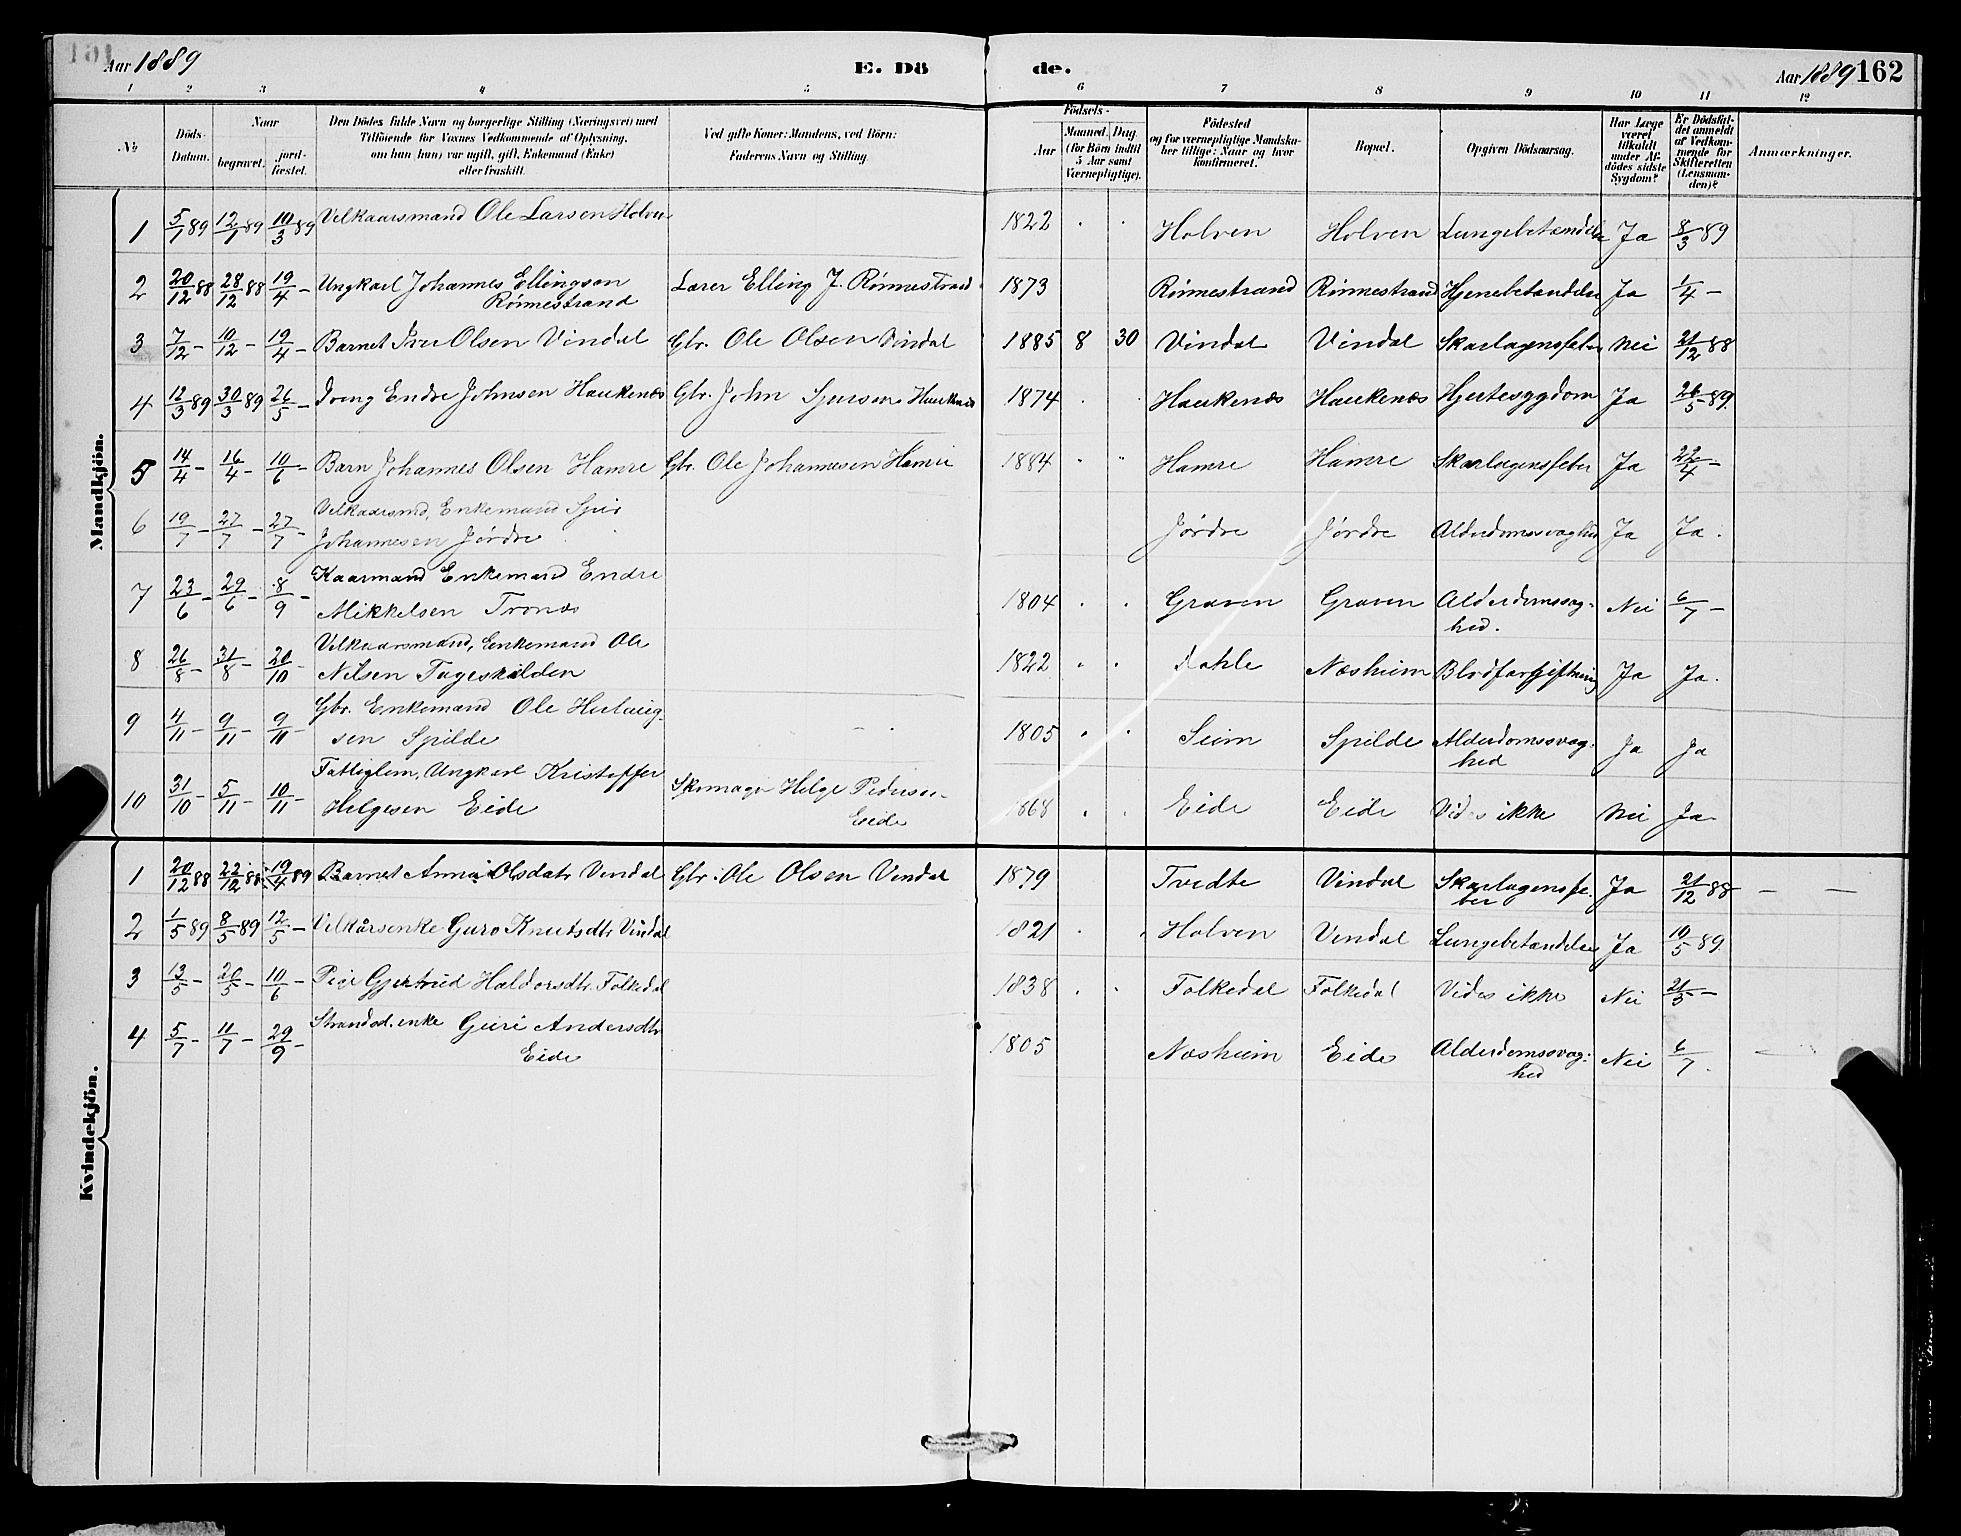 161
Aar 1889
E. Dö
de.
Aar 1889 162
1 2 3 4 5 6 7 8 9 10 11 12
No
Döds-Datum.
Naar
begravet.
jord-fæstet.
Den Dödes fulde Navn og borgerlige Stilling (Næringsvei) med
Tilföiende for Voxnes Vedkommende af Oplysning,
om han (hun) var ugift, gift, Enkemand (Enke)
eller fraskilt.
Ved gifte Koner: Mandens, ved Börn:
Faderens Navn og Stilling.
Födsels-
Aar
Maaned. Dag.
(for Börn indtil
5 Aar samt
Værnepligtige).
Födested
og for værnepligtige Mandska-
ber tillige: Naar og hvor
konfirmeret.
Bopæl.
Opgiven Dödsaarsag.
Har Læge
været
tilkaldt
under Af-
dödes sidste
Sygdom?
Er Dödsfal-
det anmeldt
af Vedkom-
mende for
Skifteretten
(Lensman-
den)?
Anmærkninger.
Mandkjön.
1 5/1 89 12/1 89 10/3 89 Velkaarsmand Ole Larsen Holven 1822 Holven Holven Lungebetændelse Ja 8/3 89
2 20/12 88 28/12 88 19/4 - Ungkarl Johannes Ellingsen Lærer Elling J. Rönnestrand 1873 Rönnestrand Rönnestrand Hjernebetændelse Ja 1/4 -
Rönnestrand
3 7/12 - 10/12 - 19/4 - Barnet Iver Olsen Vindal Gbr. Ole Olsen Vindal 1885 8 30 Vindal Vindal Skarlagensfeber Nei 21/12 88
4 12/3 89 30/3 89 26/5 - Dreng Endre Johnsen Haukenæs Gbr. John Sjursen Haukenæs 1874 Haukenæs Haukenæs Hjertesygdom Ja 26/5 89.
5 14/4 - 16/4 - 10/6 - Barn Johannes Olsen Hamre Gbr. Ole Johannesen Hamre 1884 Hamre Hamre Skarlagensfeber Ja 22/4 -
6 19/7 - 27/7 - 27/7 - Velkaarsmd, Enkemand
Johannesen Jørdre Jørdre Jørdre Alderdomssvaghed Ja Ja.
7 23/6 - 29/6 - 8/9 - Kaarmand Enkemand Endre
Mikkelsen Tronæs 1804 Graven Graven Alderdomssvag- Nei 6/7 -
hed.
8 26/8 - 31/8 - 20/10 - Velkaarsmand, Enkemand Ole
Nilsen 1822 Dahle Næsheim Blodforgiftning Ja Ja.
9 4/11 - 9/11 - 9/11 - Gbr. Enkemand Ole
sen Spilde 1805 Seim Spilde Alderdomssvag- Ja Ja
hed
10 31/10 - 5/11 - 10/11 - Fattiglem, Ungkarl Kristoffer
Helgesen Eide Skomager Helge Pedersen 1868 Eide Eide Vides ikke Nei Ja
Eide
Kvindekjön.
1 20/12 88 22/12 88 19/4 89 Barnet Anna Olsdatr Vindal Gbr. Ole Olsen Vindal 1879 Tvedte Vindal Skarlagensfe- Ja 21/12 88 - -
ber
2 1/5 89 8/5 89 12/5 - Velkårsenke Guro Knutsdtr Vindal 1821 Holven Vindal Lungebetændelse Ja 10/5 89
3 13/5 - 20/5 - 10/6 - Pige Gjertrud Haldorsdtr. Folkedal 1838 Folkedal Folkedal Vides ikke Nei 21/5 -
4 5/7 - 11/7 - 29/9 - Strandsd. enke Guri Andersdtr
Eide 1805 Næsheim Eide Alderdomssvag- Nei 6/7.
hed